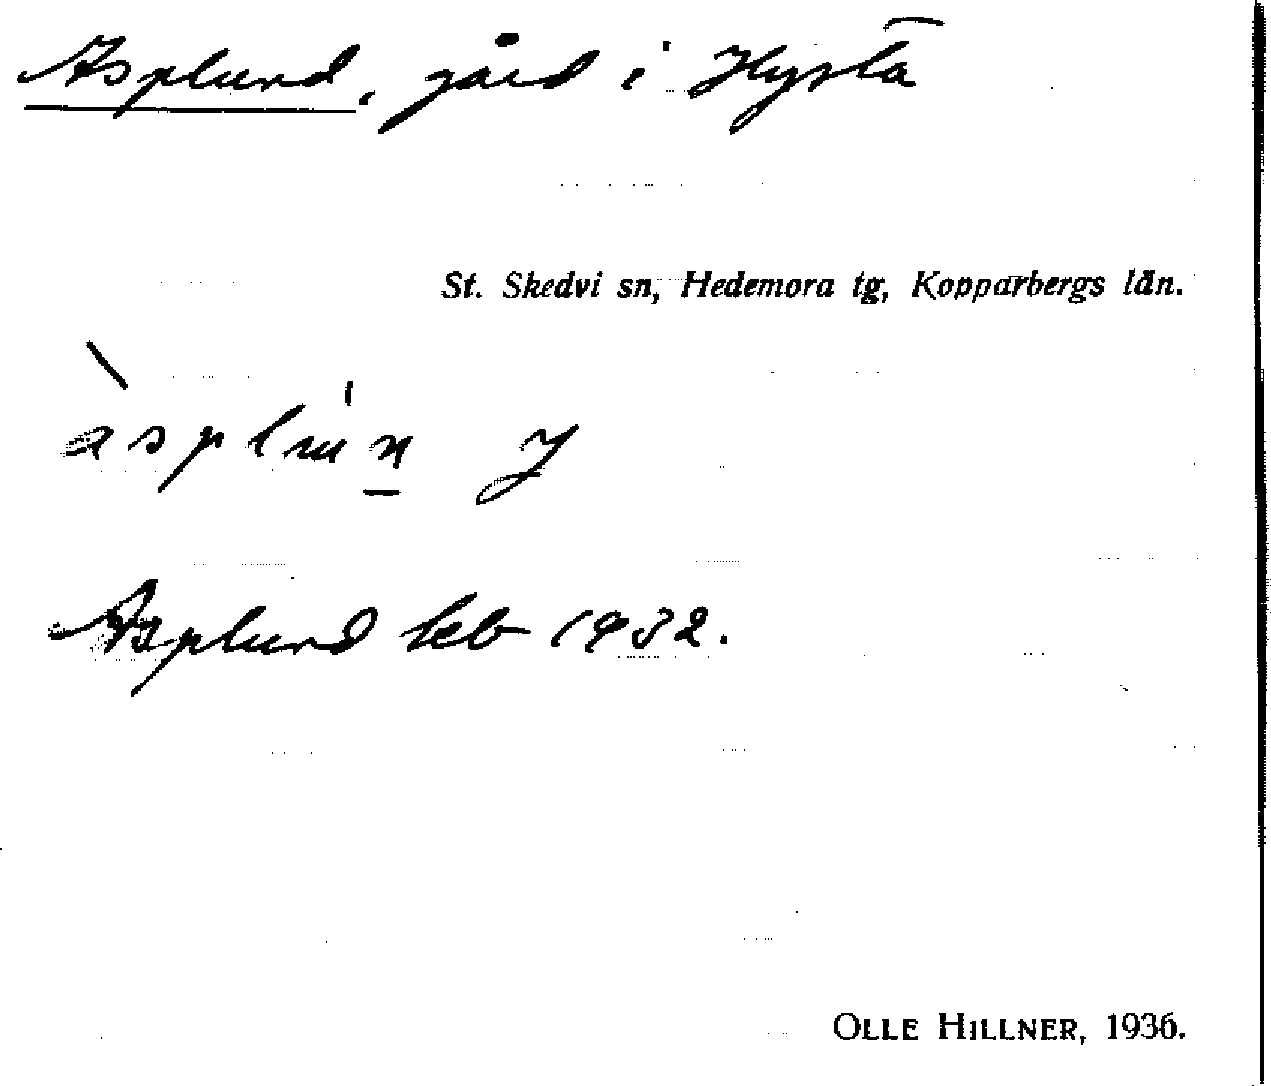 Asplund, gård i Hysta
St. Skedvi sn, Hedemora tg, Kopparbergs län.
àsplun̠ J
Asplund leb 1932.
OLLE HILLNER, 1936.